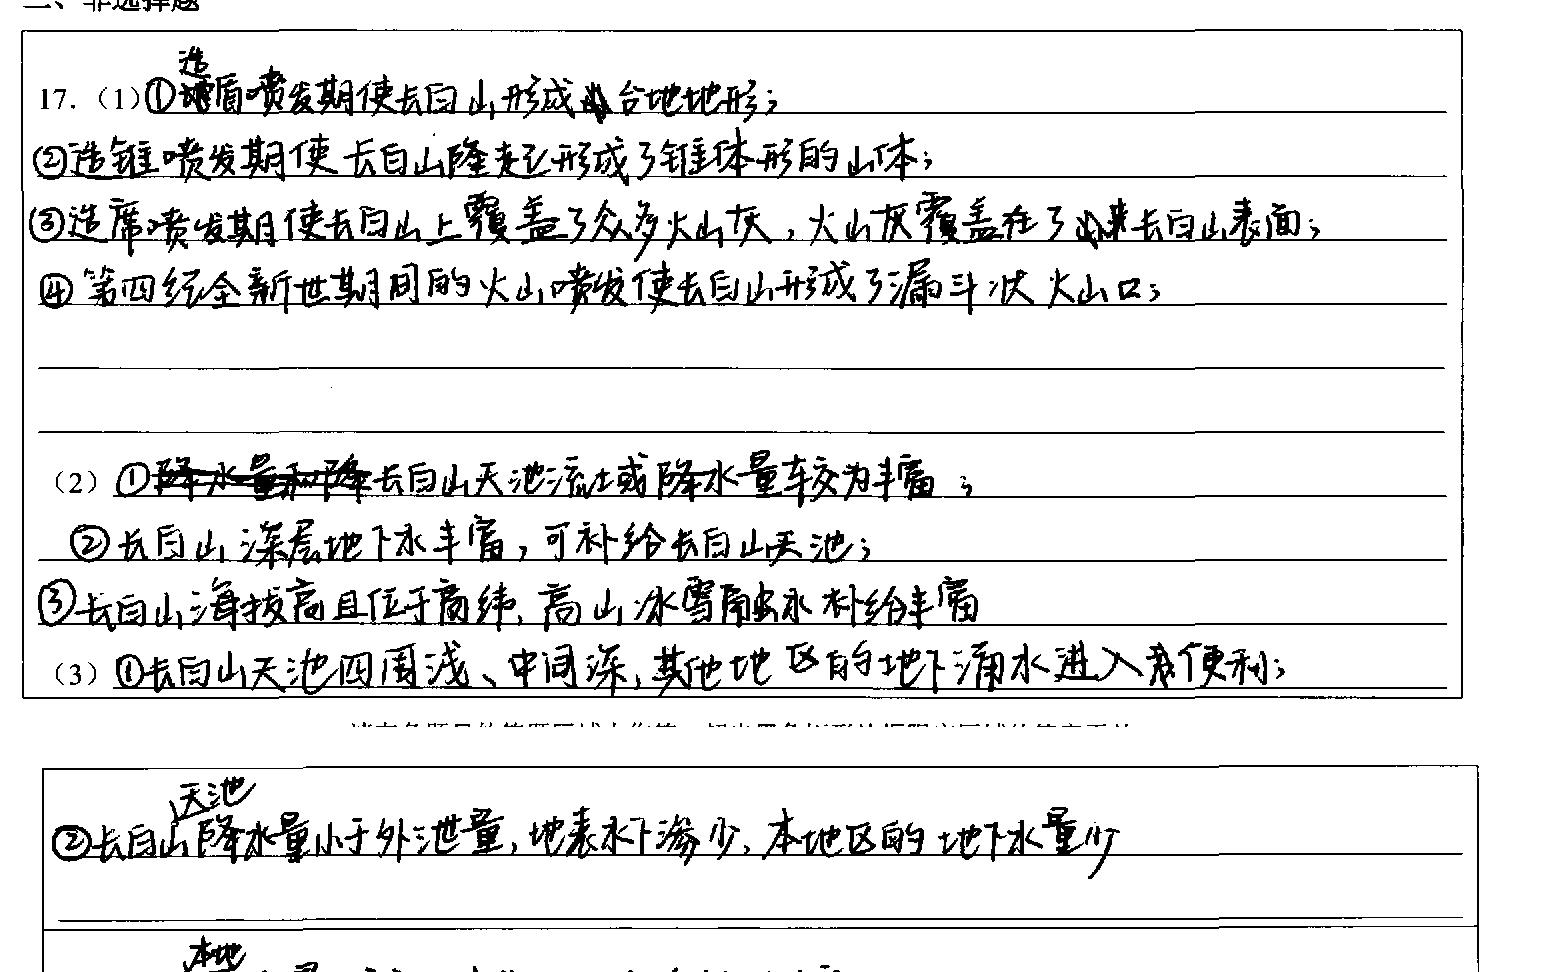 二、非选择题
17.（1）①造盾喷发期使长白山形成台地地形；
②造锥喷发期使长白山隆起形成了锥体形的山体；
③造席喷发期使长白山上覆盖了众多火山灰，火山灰覆盖在了长白山表面；
④第四纪全新世期间的火山喷发使长白山形成了漏斗状火山口；
（2）①长白山天池流域降水量较为丰富；
②长白山深层地下水丰富，可补给长白山天池；
③长白山海拔高且位于高纬，高山冰雪融水补给丰富
（3）①长白山天池四周浅、中间深，其他地区的地下涌水进入便利；
②长白山天池降水量小于外泄量，地表水下渗少，本地区的地下水量少
本地